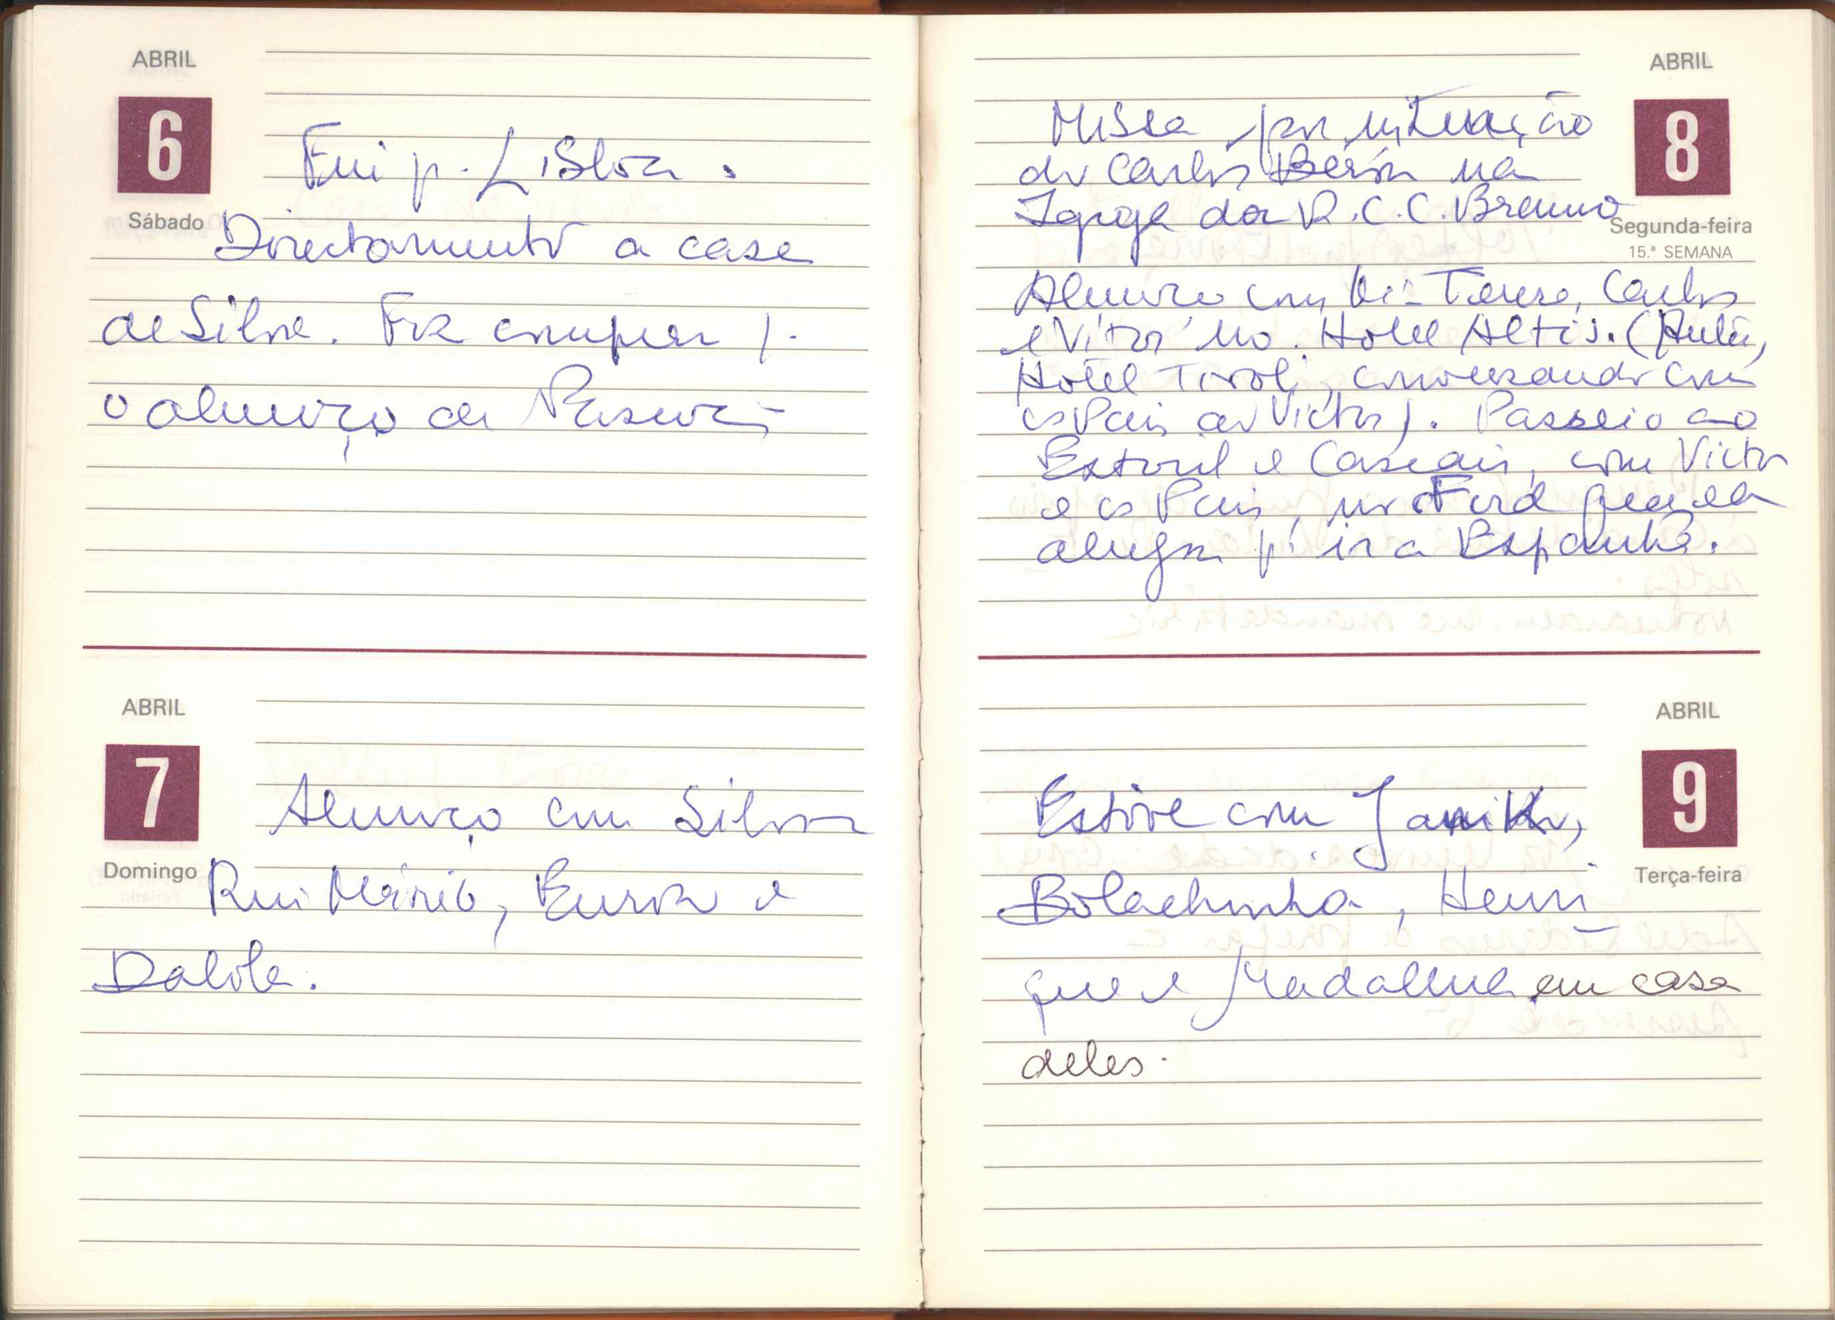 ABRIL
6
Sábado
Fui p. Lisboa.
Directamente a casa
de Silva. Fiz compras p.
o almoço de Pascoa
ABRIL
7
Domingo
Almoço com Silva
Rui Mário, Eurico e
Dalila.
ABRIL
8
Segunda-feira
15.ª SEMANA
Missa por intenção
do Carlos na
Igreja da R. C. C. Branco
Almoço com Teresa, Carlos
e Vitor no Hotel Altis. (Antes,
Hotel Tivoli, conversando com
os Pais do Victor). Passeio ao
Estoril e Cascais, com Victor
e os Pais, no Ford que ela
alugou p. ir a Espanha.
ABRIL
9
Terça-feira
Estive com
Bolachinha, Henri
que e Madalena em casa
deles.